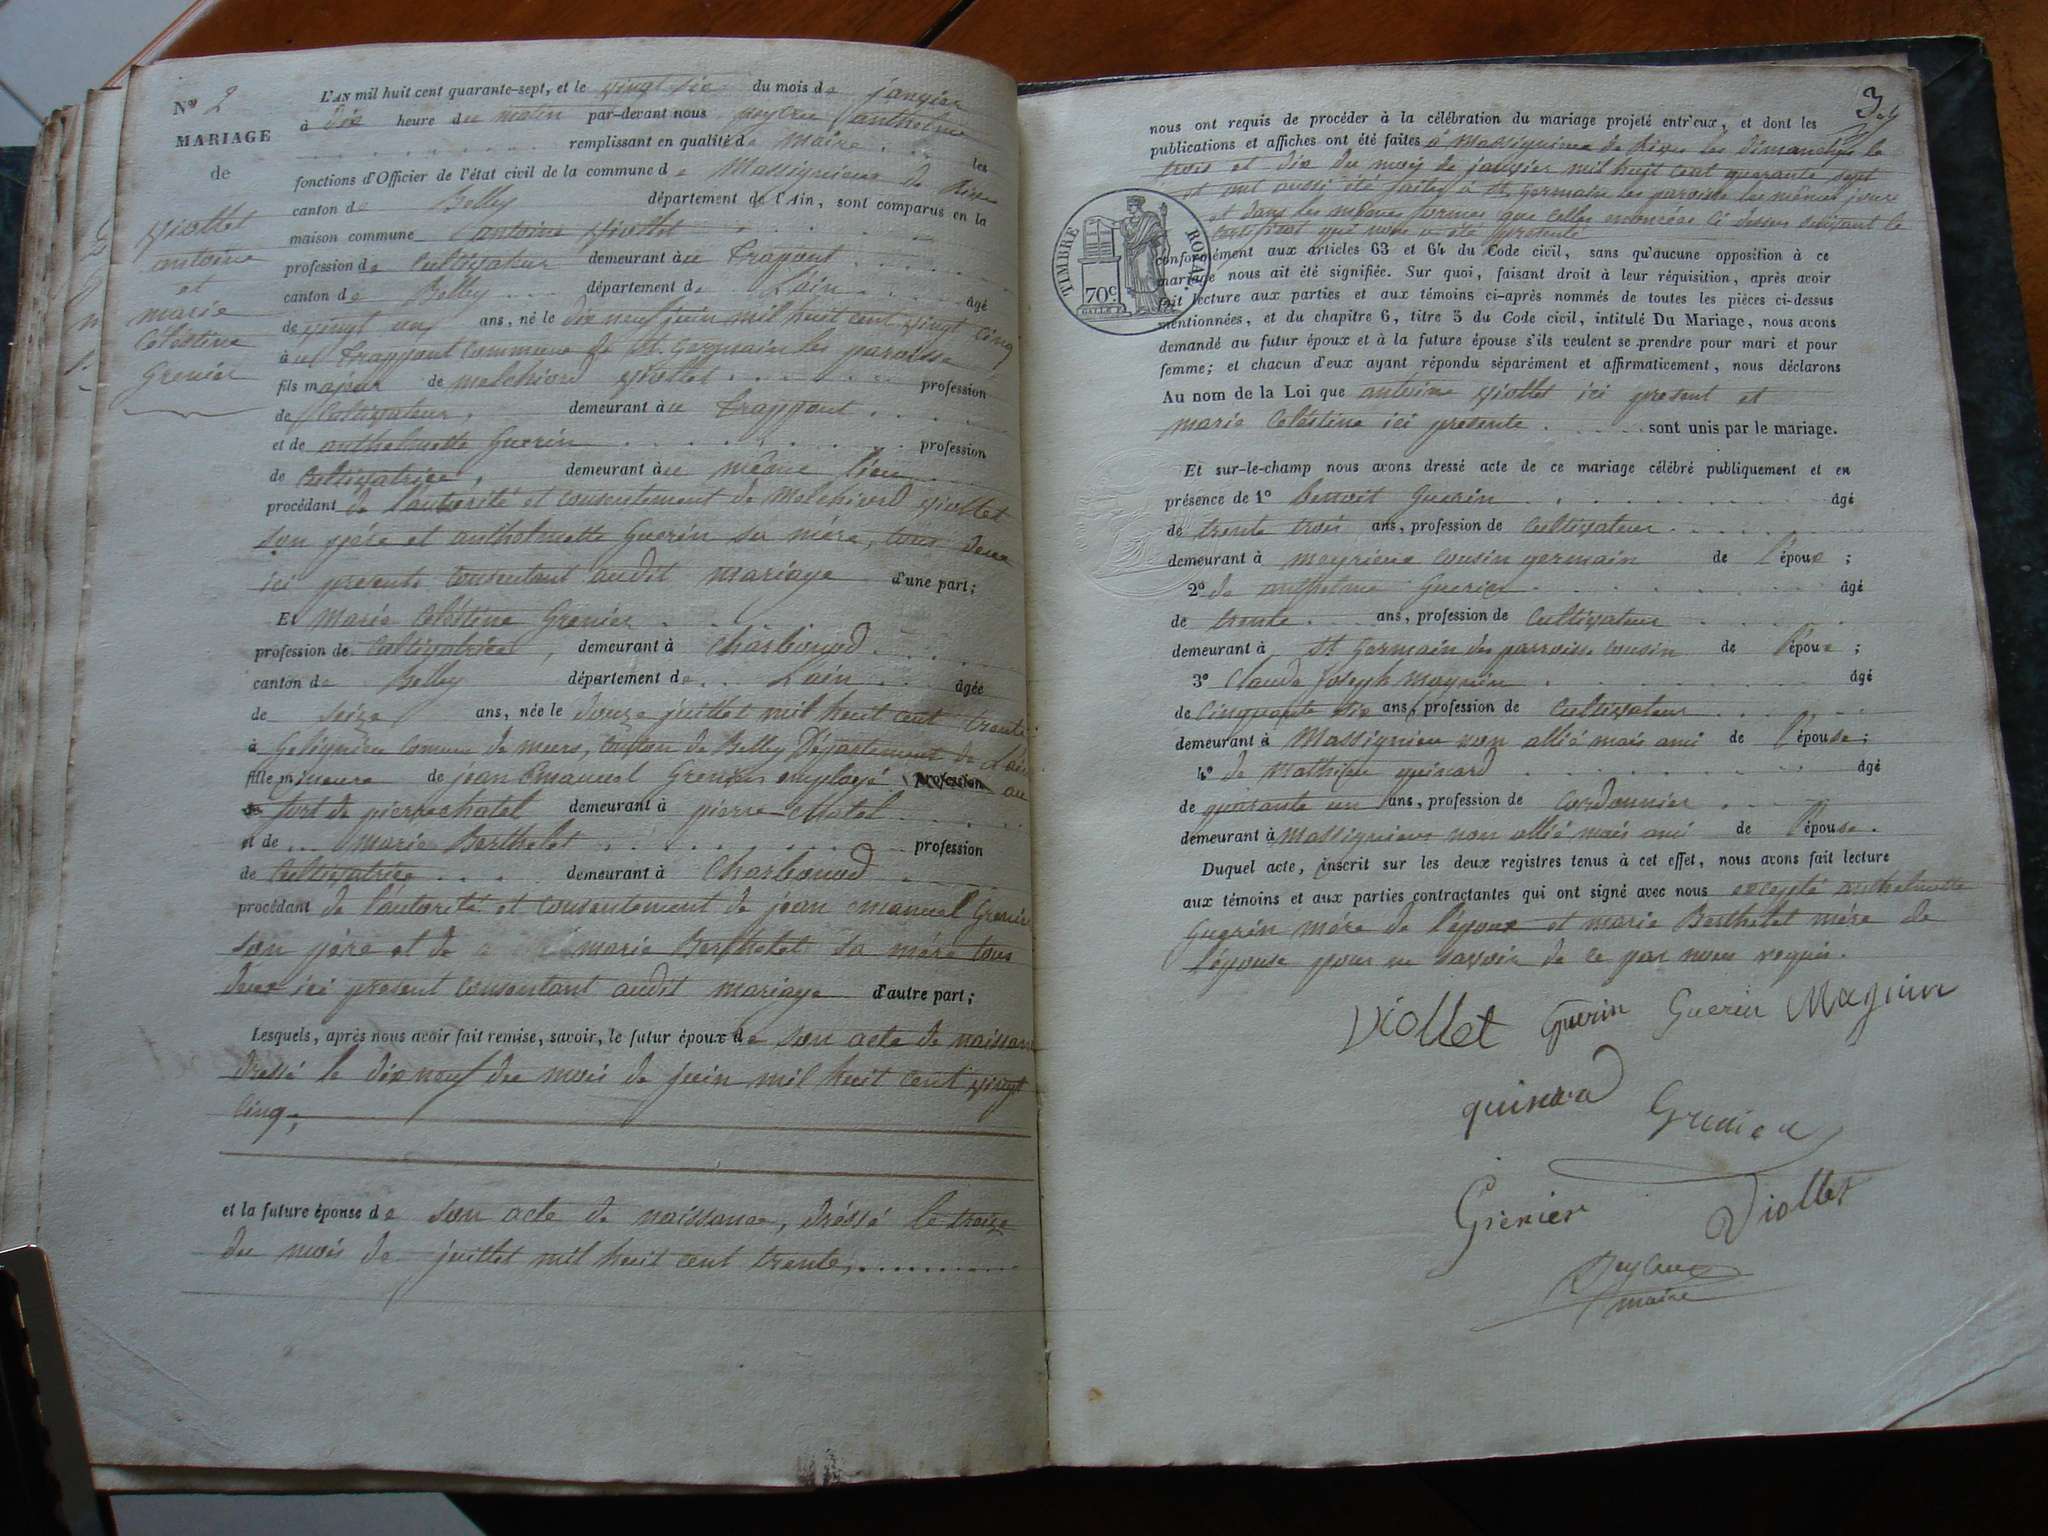 N° 2
MARIAGE
de
Viollet
antoine
et
marie
Celéstine
Grenier
L'AN mil huit cent quarante-sept, et le vingt six du mois de janvier
à dix heure du matin par-devant nous peytru anthelme
remplissant en qualité de maire les
fonctions d'Officier de l'état civil de la commune de Massignieux de Rives
canton de Belley département de l'Ain, sont comparus en la
maison commune antoine Viollet
profession de Cultivateur demeurant à Trappont
canton de Belley département de L'ain âgé
de vingt un ans, né le dix neuf juin mil huit cent vingt cinq
à Trappont Commune de St. Germain les paroisse
fils majeur de melchiord Viollet profession
de Cultivateur demeurant à Trappont
et de anthelmette Guerin profession
de Cultivatrice, demeurant à même lieu
procédant de l'autorité et consentement de Melchiord Viollet
son père et anthelmette Guerin sa mère, tous deux
ici présents consentant audit mariage d'une part;
Et Marie Celéstine Grenier
profession de Cultivatrice, demeurant à Charbonod
canton de Belley département de L'ain âgée
de seize ans, née le douze juillet mil huit cent trente
à comune de meurs, canton de Belley Département de L'ain
fille mineure de jean Emanuel Grenier employé profession au
de fort de pierrechatel demeurant à pierre-chatel
et de marie Berthelet profession
de Cultivatrice demeurant à Charbonod
procédant de l'autorité et consentement de jean emanuel Grenier
son père et de marie Berthelet sa mère tous
deux ici présent consentant audit mariage d'autre part;
Lesquels, après nous avoir fait remise, savoir, le futur époux de son acte de naissan
dressé le dix neuf du mois de juin mil huit cent vingt
cinq,
et la future épouse de son acte de naissance, dréssé le treize
du mois de juillet mil huit cent trente,
3
nous ont requis de procéder à la célébration du mariage projeté entr'eux, et dont les
publications et affiches ont été faites à Massignieux de Rives les dimanches le
trois et dix du mois de janvier mil huit cent quarante sept
et ont aussi été faites à St. Germain les paroisse les mêmes jours
et dans les mêmes formes que celles énoncées ci dessus suivant le
certificat qui nous a été présenté
conformément aux articles 63 et 64 du Code civil, sans qu'aucune opposition à ce
mariage nous ait été signifiée. Sur quoi, faisant droit à leur réquisition, après avoir
fait lecture aux parties et aux témoins ci-après nommés de toutes les pièces ci-dessus
mentionnées, et du chapitre 6, titre 5 du Code civil, intitulé Du Mariage, nous avons
demandé au futur époux et à la future épouse s'ils veulent se prendre pour mari et pour
femme; et chacun d'eux ayant répondu séparément et affirmativement, nous déclarons
Au nom de la Loi que antoine Viollet ici présent et
marie Celéstine ici présente sont unis par le mariage.
TIMBRE ROYAL
70c
Et sur-le-champ nous avons dressé acte de ce mariage célébré publiquement et en
présence de 1° benoit Guerin âgé
de trente trois ans, profession de Cultivateur
demeurant à meyrieux cousin germain de l'époux;
2° de anthelme Guerin âgé
de trente ans, profession de Cultivateur
demeurant à St Germain les parroisse cousin de l'époux;
3° Claude Joseph Magnin âgé
de cinquante six ans, profession de Cultivateur
demeurant à Massignieu non allié mais ami de l'épouse;
4° de Mathieu quinard âgé
de quarante un ans, profession de Cordonnier
demeurant à Massignieux non allié mais ami de l'épouse.
Duquel acte, inscrit sur les deux registres tenus à cet effet, nous avons fait lecture
aux témoins et aux parties contractantes qui ont signé avec nous excepté anthelmette
Guerin mère de l'époux et marie Berthelet mère de
l'épouse pour ne savoir de ce par nous requis.
Viollet Guerin Guerin Magnin
quinard
Grenier
Grenier
Viollet
maire